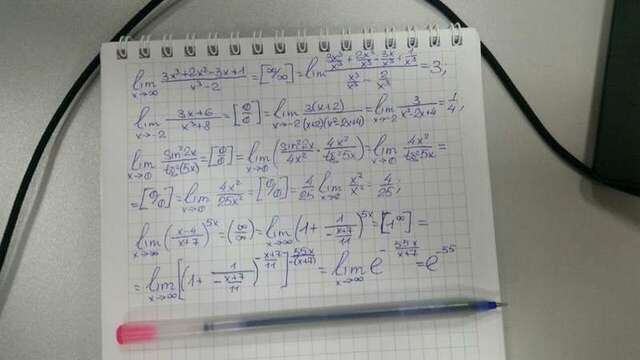 lim x→∞ (3x³+2x²-3x+1)/(x³-2) = [∞/∞] = lim x→∞ (3x³/x³ + 2x²/x³ - 3x/x³ + 1/x³)/(x³/x³ - 2/x³) = 3,
lim x→-2 (3x+6)/(x³+8) = [0/0] = lim x→-2 3(x+2)/((x+2)(x²-2x+4)) = lim x→-2 3/(x²-2x+4) = 1/4,
lim x→0 sin²2x/tg²(5x) = [0/0] = lim x→0 (sin²2x/4x² · 4x²/tg²5x) = lim x→0 4x²/tg²5x =
= [0/0] = lim x→0 4x²/25x² = [0/0] = 4/25 lim x→0 x²/x² = 4/25;
lim x→∞ ((x-4)/(x+7))^5x = (∞/∞) = lim x→∞ (1 + 1/(-(x+7)/11))^5x = [1^∞] =
= lim x→∞ [(1 + 1/(-(x+7)/11))^(-(x+7)/11)]^(55x/-(x+7)) = lim x→∞ e^(-55x/(x+7)) = e^-55